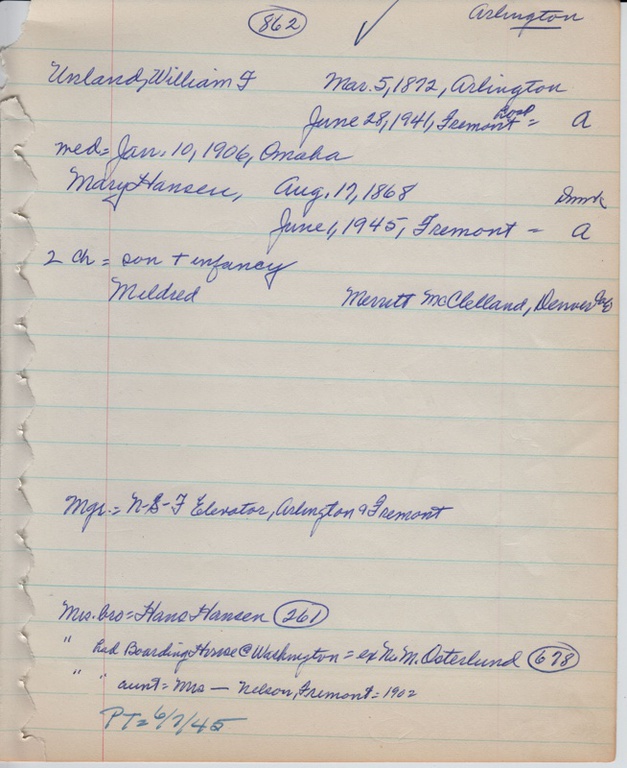 862
Arlington
Unland, William F Mar. 5, 1872, Arlington
June 28, 1941, Fremont Hosp = A
med = Jan. 10, 1906, Omaha
Mary Hansen, Aug. 17, 1868 Dnmk
June 1, 1945, Fremont = A
2 Ch = son + infancy
Mildred Merritt McClelland, Denver
Mgr. = N-S-F Elevator, Arlington & Fremont
Mrs. bro = Hans Hansen 261
" had Boarding House @ Washington = ex No M. Osterlund 678
" " aunt = Mrs — Nelson, Fremont = 1902
PT = 6/7/45